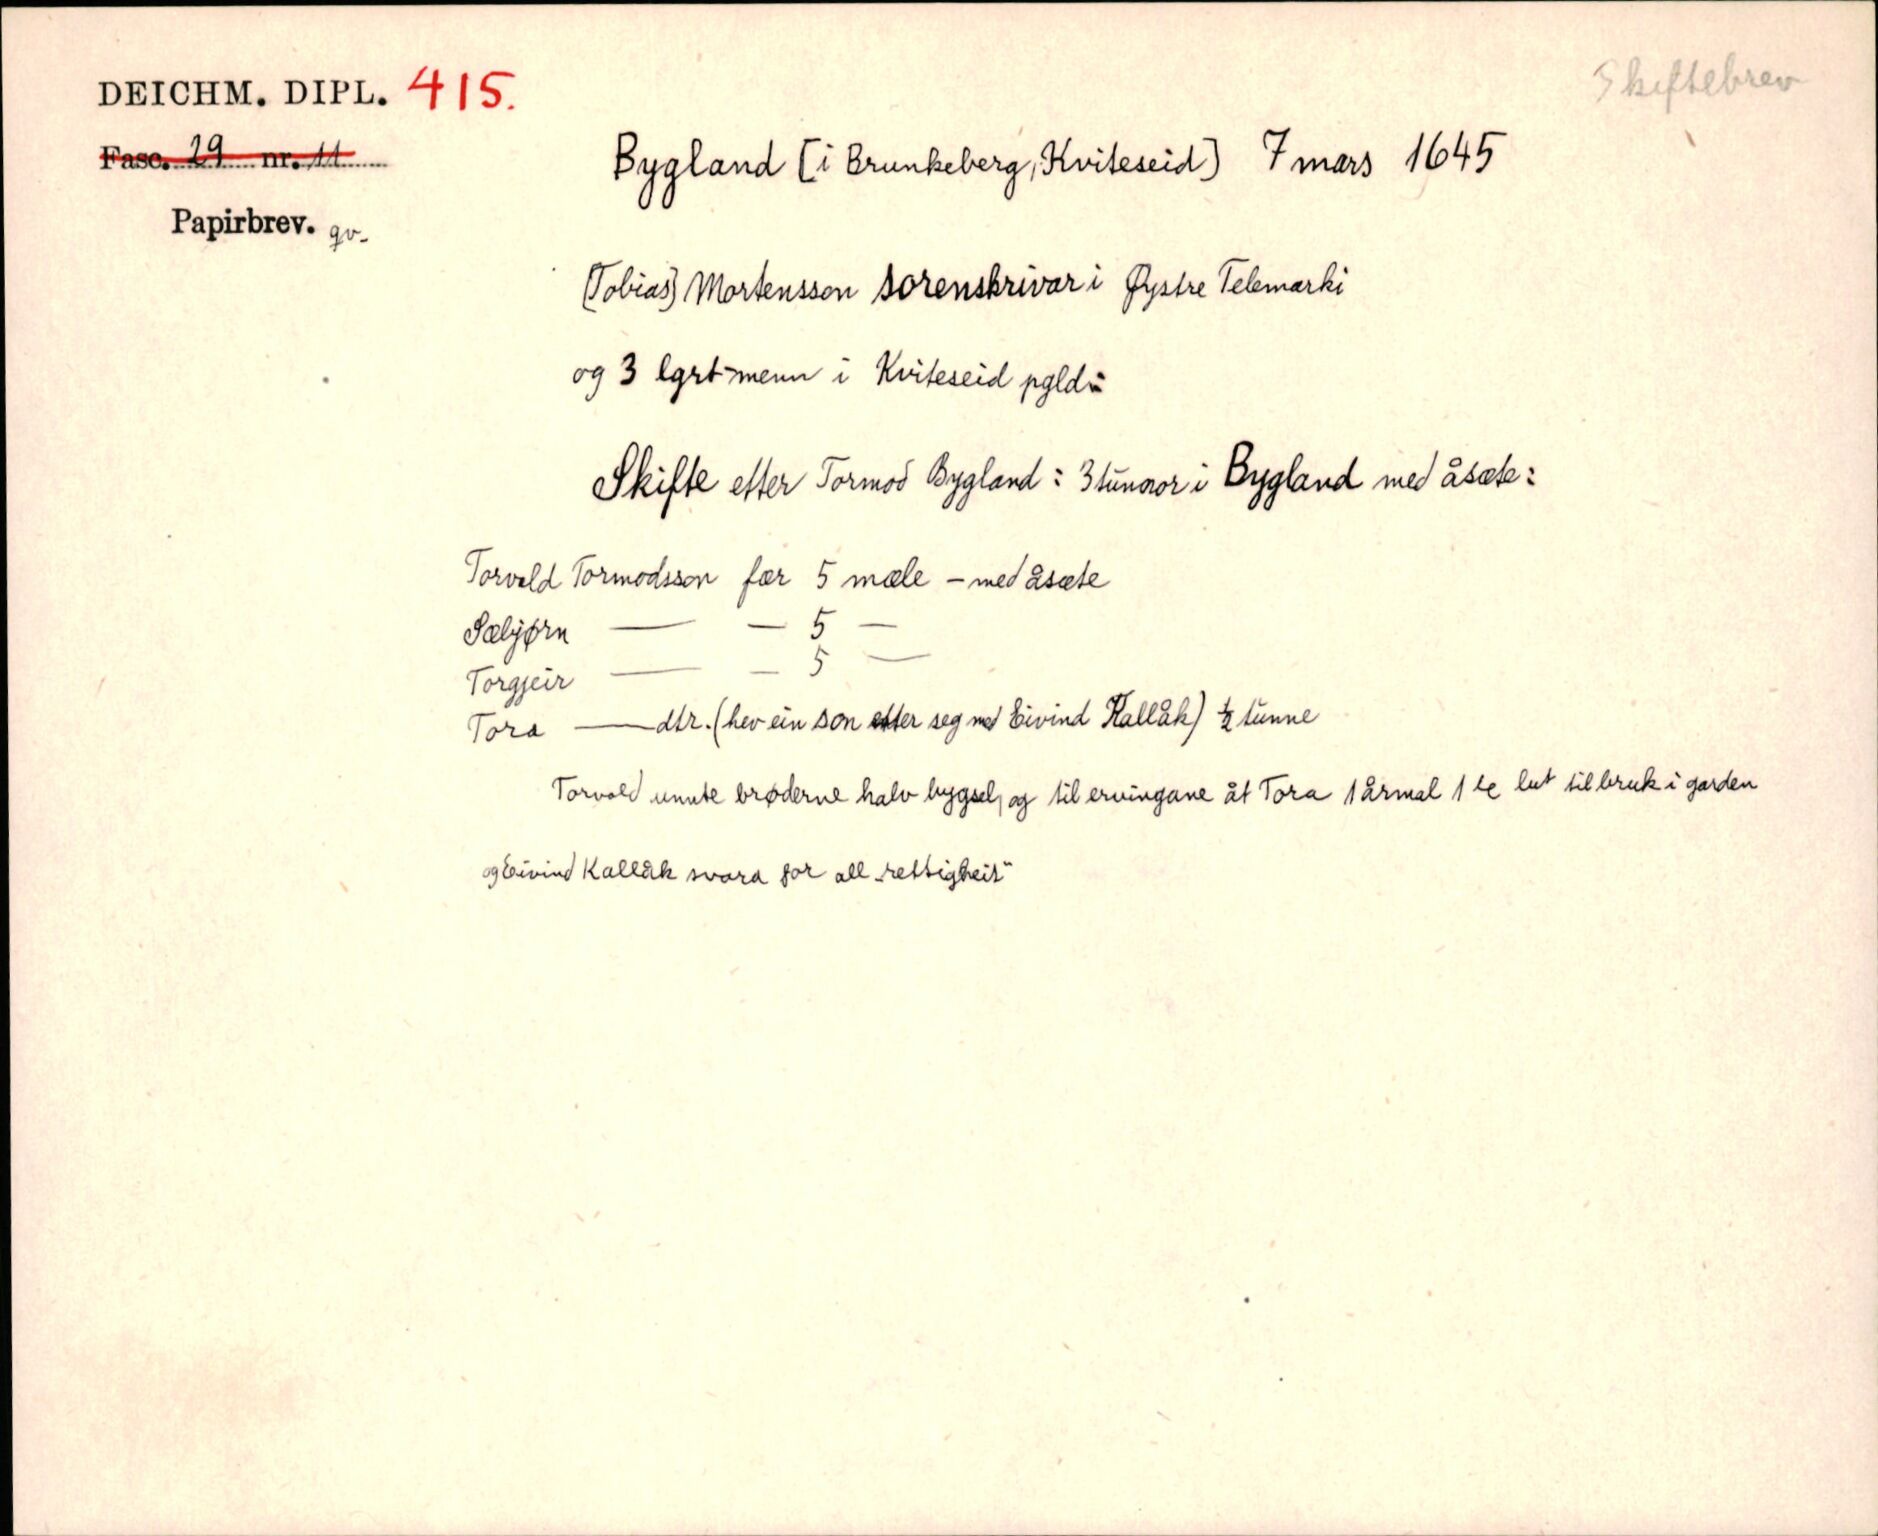 DEICHM. DIPL. 415.
Skiftebrev
Fasc. 29 nr. 11
Bygland [i Brunkeberg, Kviteseid] 7 mars 1645
Papirbrev. qv.
[Tobias] Mortensson sorenskrivar i Øystre Telemarki
og 3 lgrt-menn i Kviteseid pgld:
Skifte etter Tormod Bygland: 3 tunnor i Bygland med åsæte:
Torvald Tormodsson fær 5 mæle - med åsæte
Sæbjørn — — 5 —
Torgjeir — — 5 —
Tora — dtr. (hev ein son etter seg med Eivind Kallåk) ½ tunne
Torvald unnte brøderne halv bygsel, og til ervingane åt Tora 1 årmal 1 le lut til bruk i garden
og Eivind Kallåk svara for all „rettigheit"